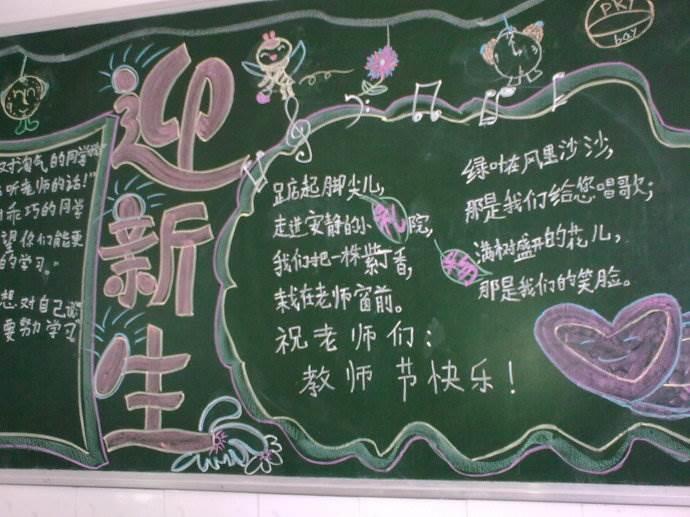 对淘气的同学说
听老师的话!”
乖巧的同学
望你们能更
的学习。
想对自己说
要努力学习
迎新生
踮起脚尖儿,
走进安静的小院,
我们把一株紫丁香,
栽在老师窗前。
祝老师们:
教师节快乐!
礼
物
绿叶在风里沙沙,
那是我们给您唱歌;
满树盛开的花儿,
那是我们的笑脸。
PKY
bay